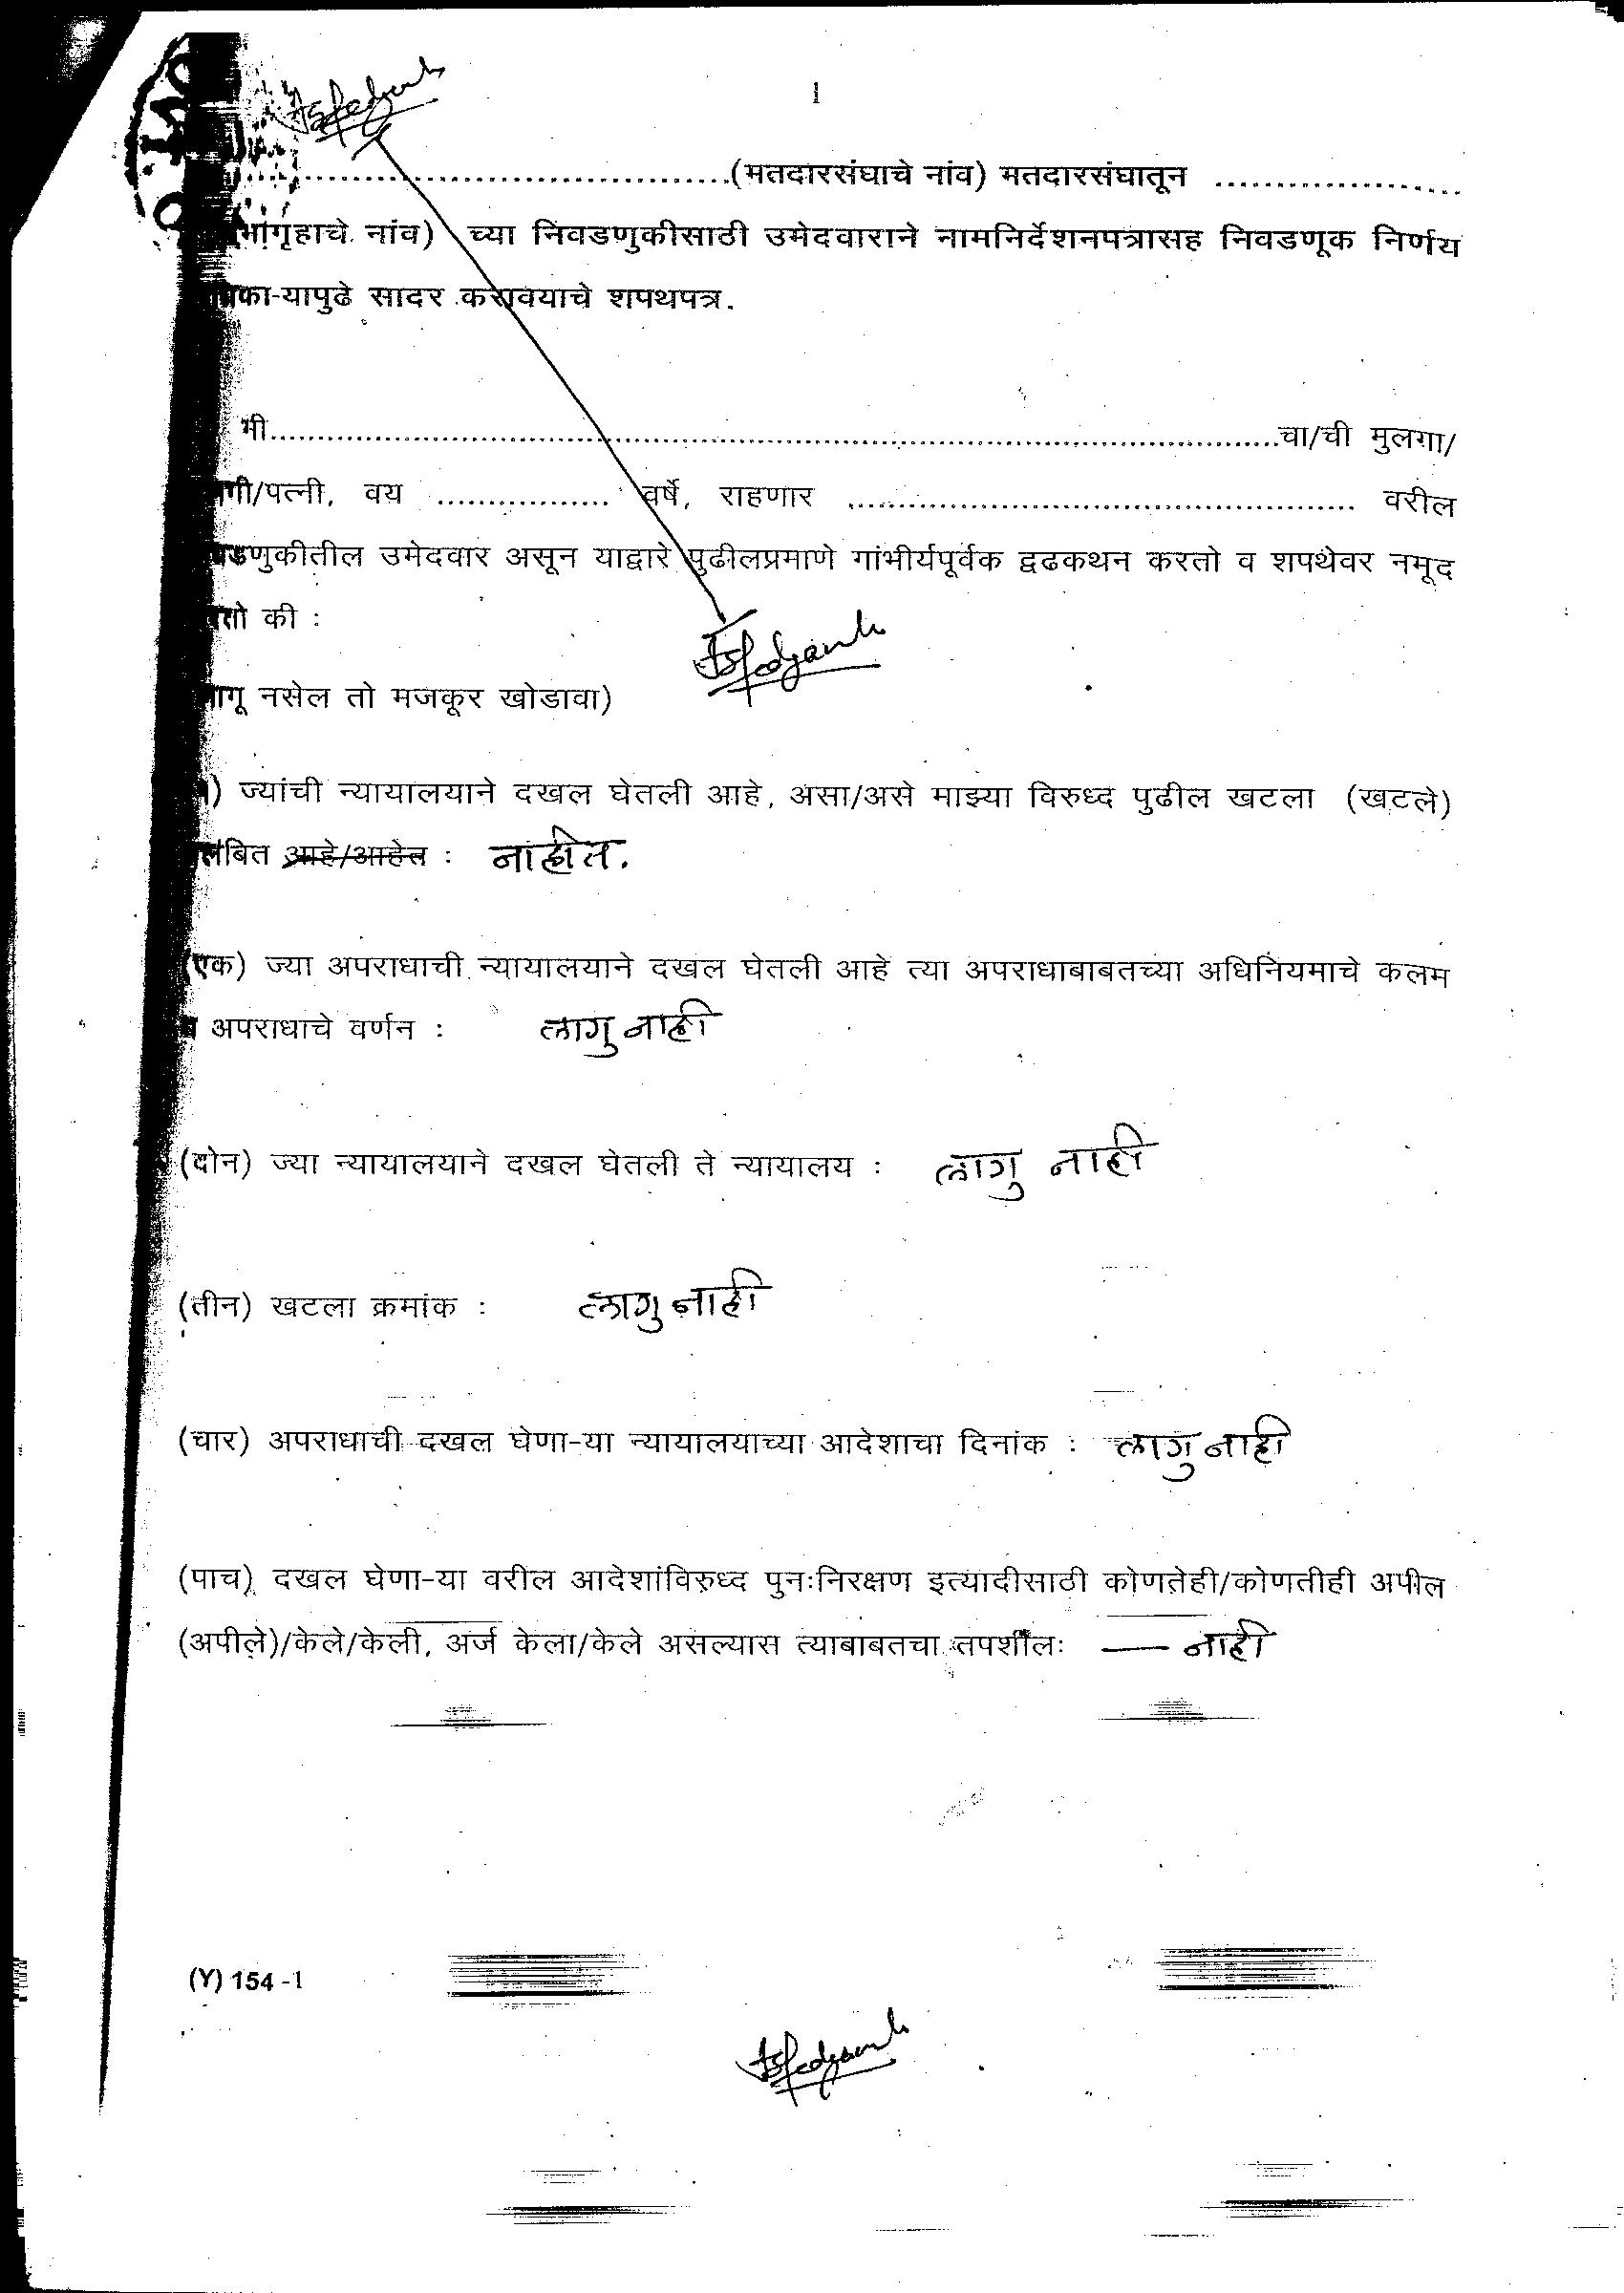 1
(मतदारसंघाचे नांव) मतदारसंघातून
नांव) च्या निवडणुकीसाठी उमेदवाराने नामनिर्देशनपत्रासह निवडणूक निर्णय
सादर करावयाचे शपथपत्र.
मी चा/ची मुलगा/
/पत्नी, वय वर्षे, राहणार वरील
उमेदवार असून याद्वारे पुढीलप्रमाणे गांभीर्यपूर्वक द्वढकथन करतो व शपथेवर नमूद
की :
नसेल तो मजकूर खोडावा)
) ज्यांची न्यायालयाने दखल घेतली आहे, असा/असे माझ्या विरुध्द पुढील खटला (खटले)
आहे/आहेत : नाहीत.
(एक) ज्या अपराधाची न्यायालयाने दखल घेतली आहे त्या अपराधाबाबतच्या अधिनियमाचे कलम
अपराधाचे वर्णन : लागु नाही
(दोन) ज्या न्यायालयाने दखल घेतली ते न्यायालय : लागु नाही
(तीन) खटला क्रमांक : लागु नाही
(चार) अपराधाची दखल घेणा-या न्यायालयाच्या आदेशाचा दिनांक : लागु नाही
(पाच) दखल घेणा-या वरील आदेशांविरुध्द पुनःनिरक्षण इत्यादीसाठी कोणतेही/कोणतीही अपील
(अपीले)/केले/केली, अर्ज केला/केले असल्यास त्याबाबतचा तपशीलः — नाही
(Y) 154 -1